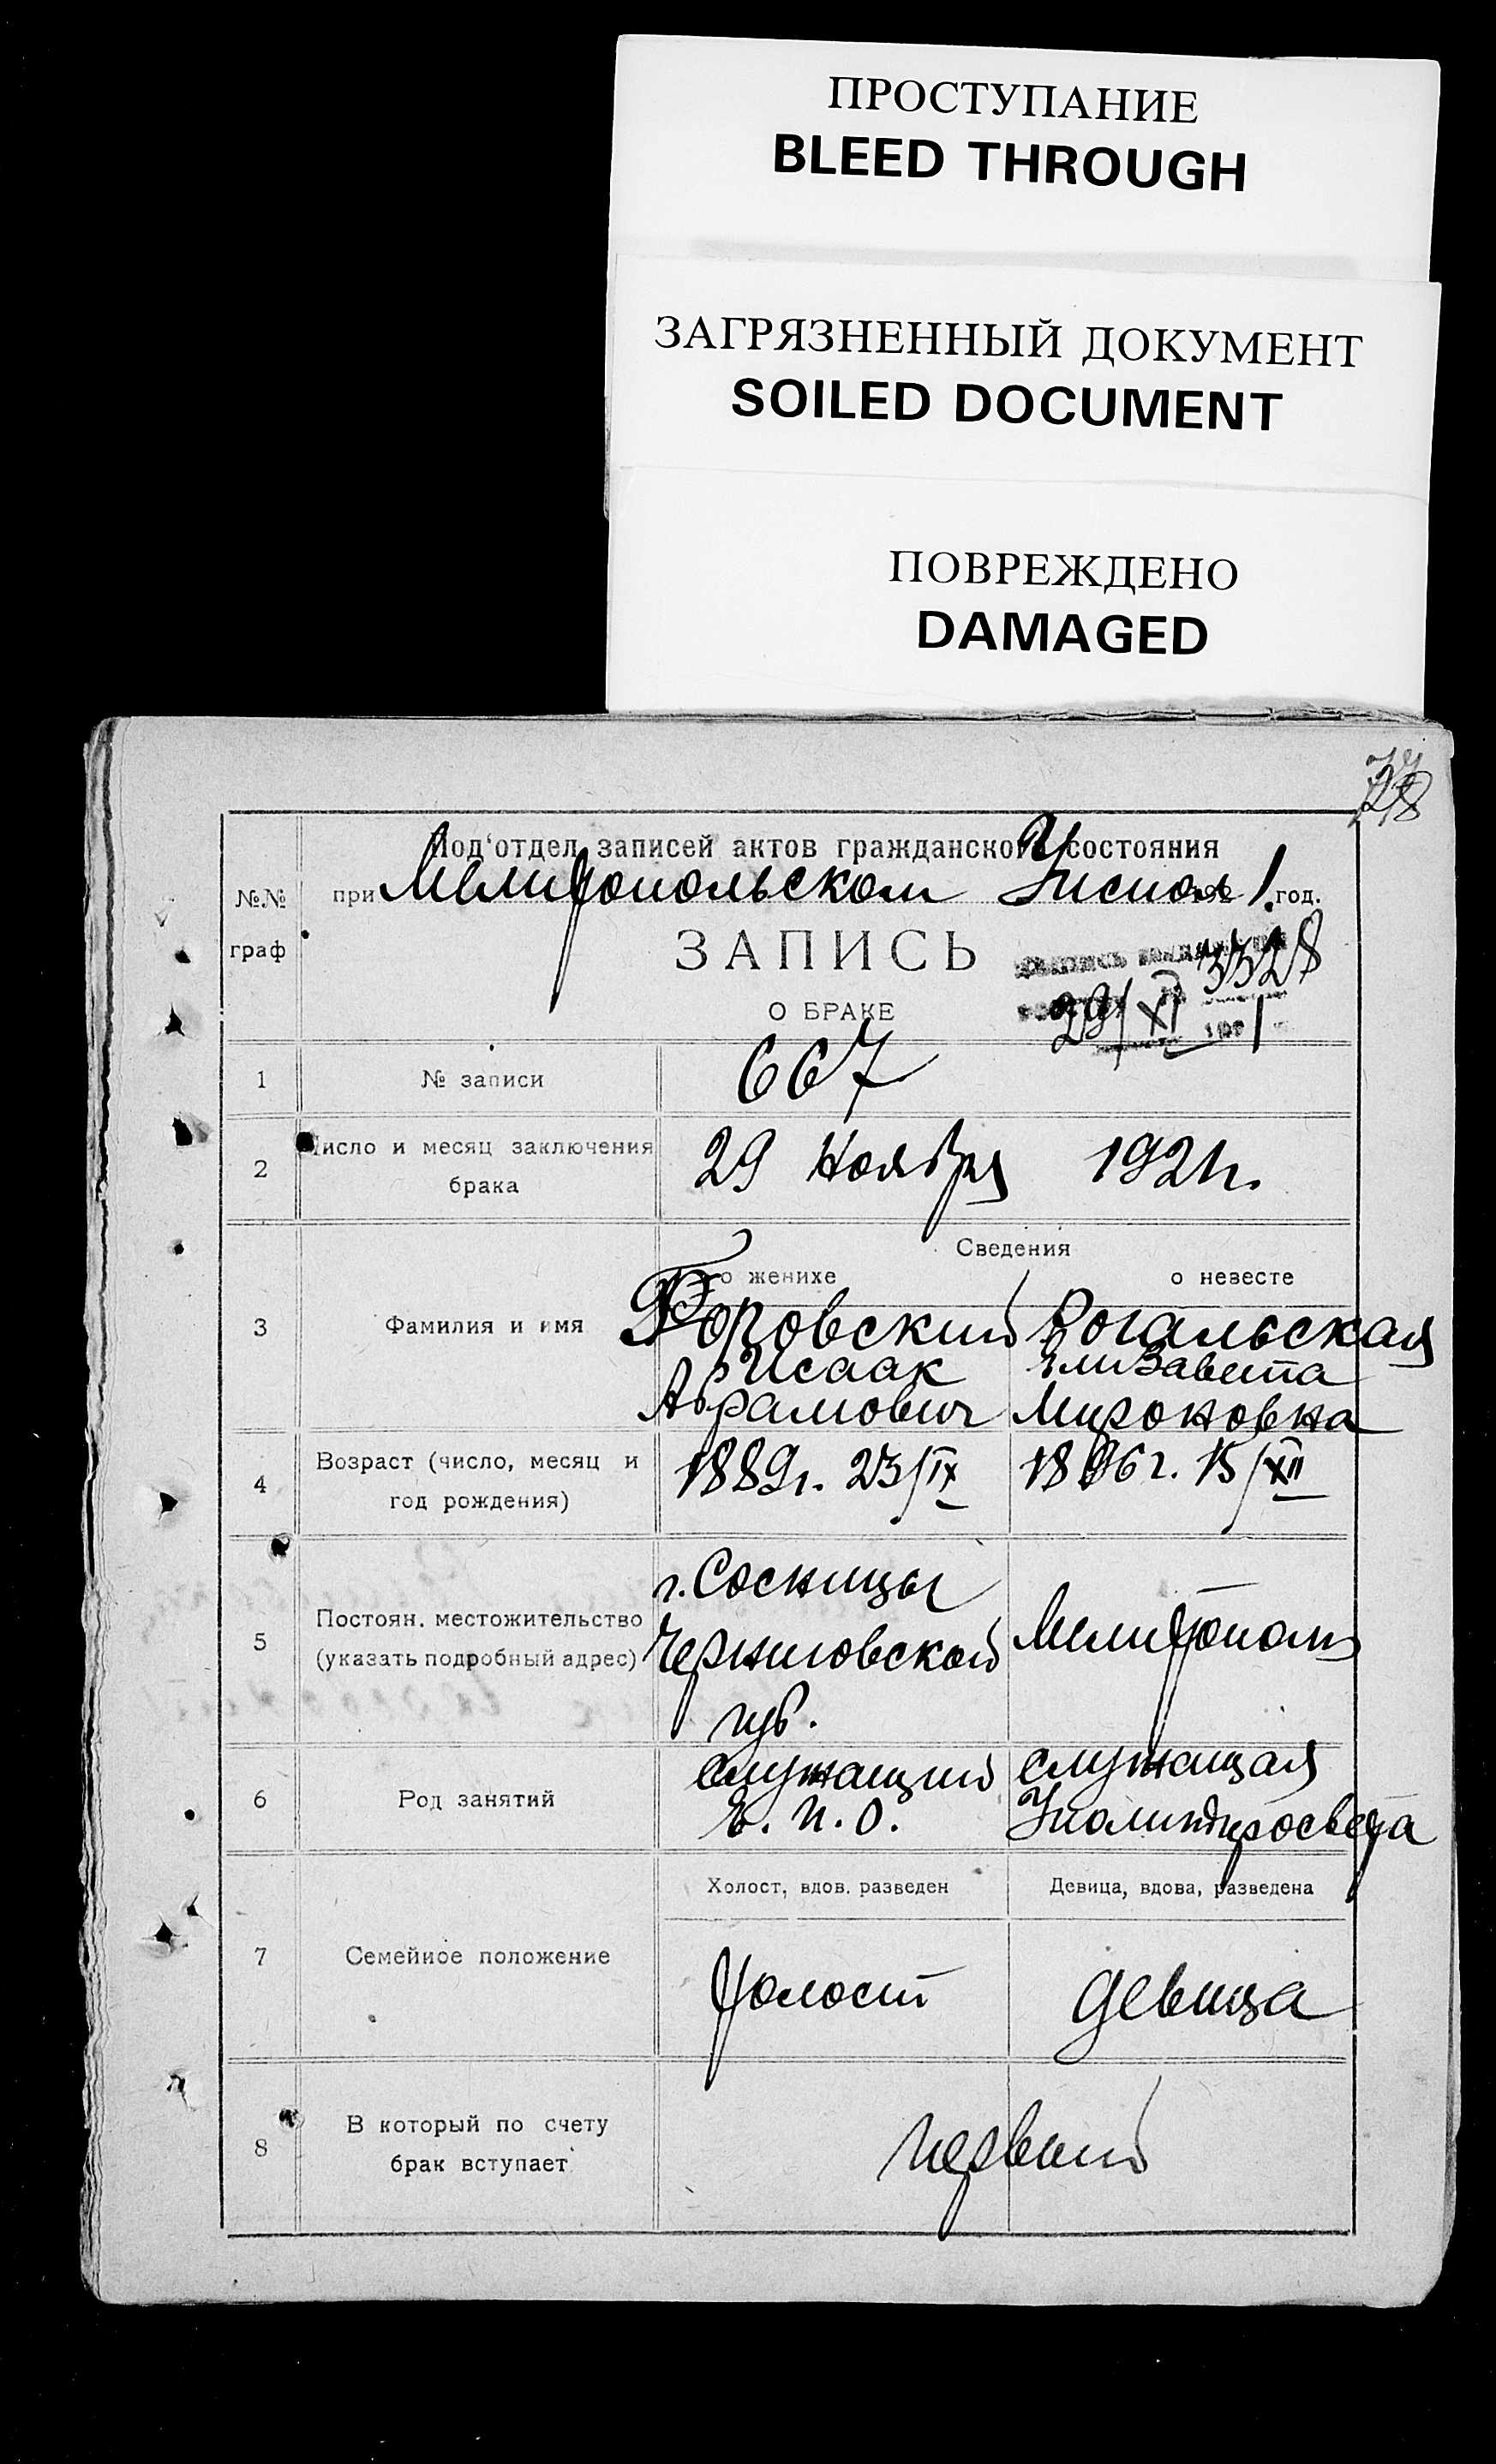 ПРОСТУПАНИЕ
BLEED THROUGH
ЗАГРЯЗНЕННЫЙ ДОКУМЕНТ
SOILED DOCUMENT
ПОВРЕЖДЕНО
DAMAGED
78
Под'отдел записей актов гражданского состояния
№№ граф
при Мелитопольском Уисполк 1921 год.
ЗАПИСЬ
О БРАКЕ
3328
29/XI 1921
1 № записи 667
2 Число и месяц заключения брака 29 Ноября 1921 г.
Сведения
о женихе о невесте
3 Фамилия и имя
Боровский Рогальская
Исаак Елизавета
Абрамович Мироновна
4 Возраст (число, месяц и год рождения) 1889 г. 23/IX 1896 г. 15/XII
5 Постоян. местожительство (указать подробный адрес)
г. Сосницы
Черниговской Мелитополь
губ.
6 Род занятий
служащий служащая
Е. П. О. Уполитпросвета
Холост, вдов. разведен Девица, вдова, разведена
7 Семейное положение холост девица
8 В который по счету брак вступает первый